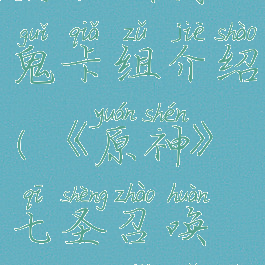 guǐ qiǎ zǔ jiè shào
鬼卡组介绍
yuán shén
(《原神》
qī shèng zhào huàn
七圣召唤